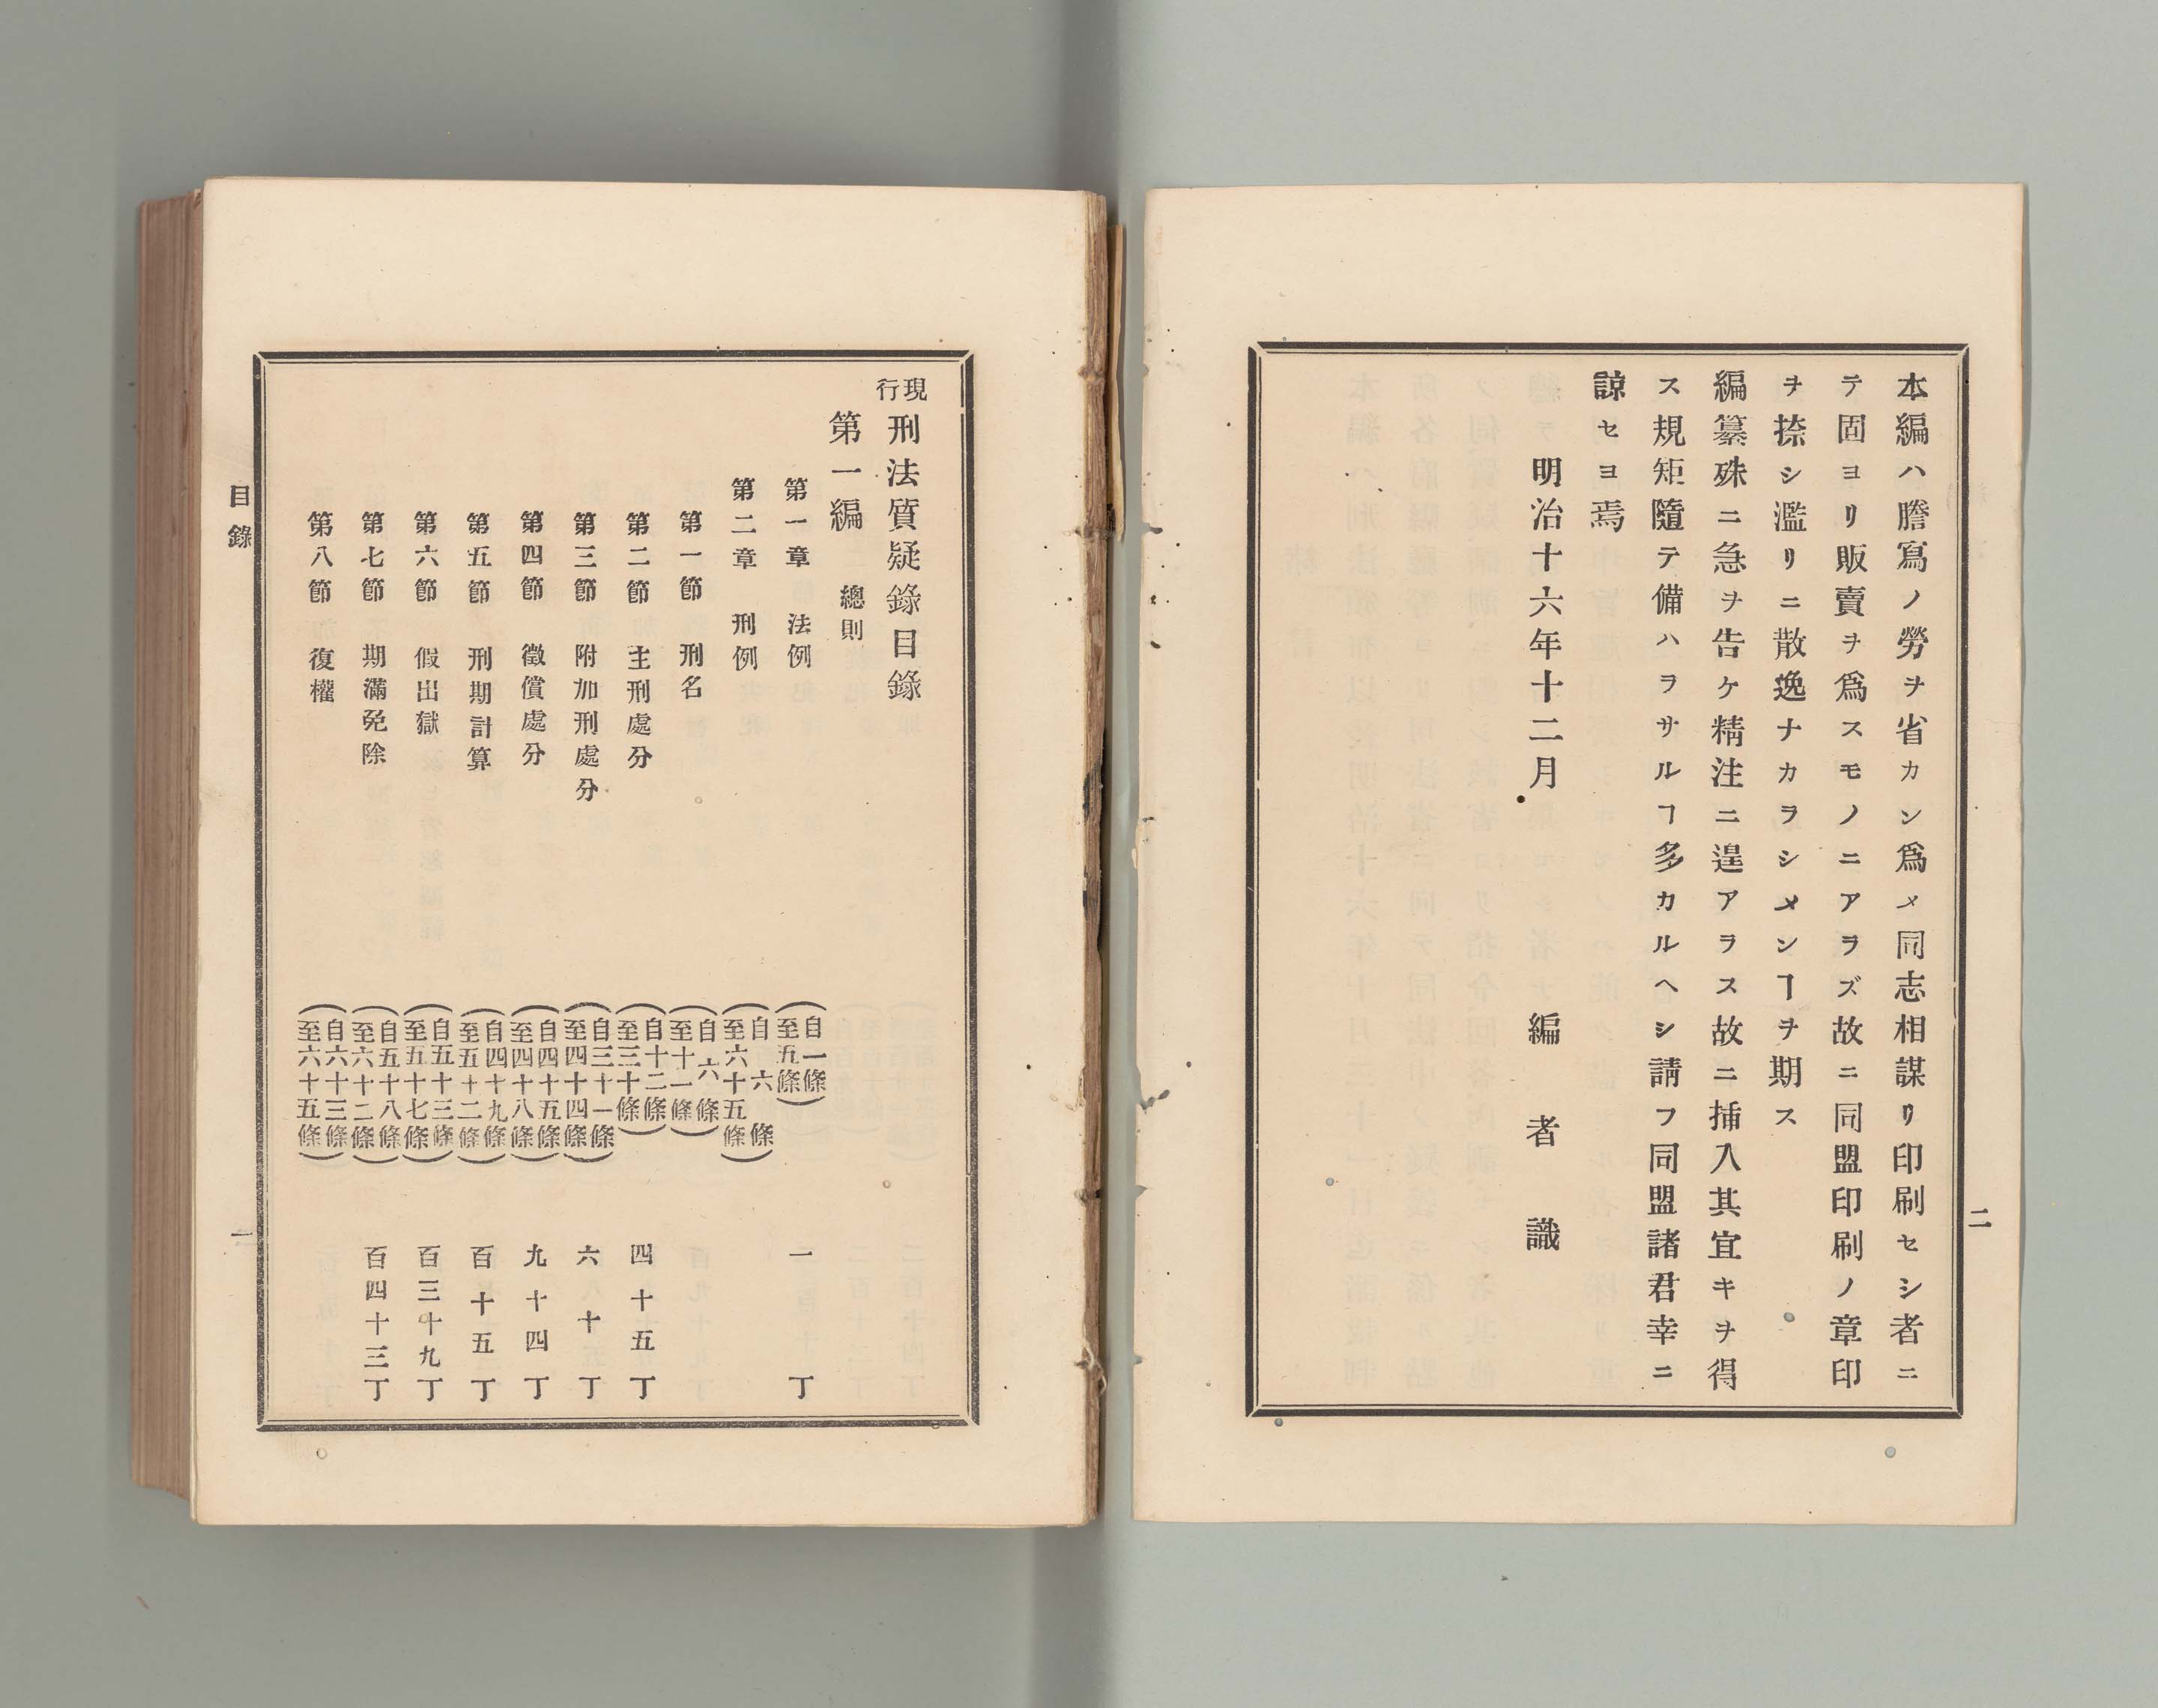 二
本編ハ謄寫ノ勞ヲ省カン爲メ同志相謀リ印刷セシ者ニ
テ固ヨリ販賣ヲ爲スモノニアラズ故ニ同盟印刷ノ章印
ヲ捺シ濫リニ散逸ナカラシメンヿヲ期ス
編纂殊ニ急ヲ告ケ精注ニ遑アラス故ニ挿入其宜キヲ得
ス規矩隨テ備ハヲサルヿ多カルヘシ請フ同盟諸君幸ニ
諒セヨ焉
明治十六年十二月
編者識
現行刑法質疑錄目錄
第一編 總則
第一章 法例 (自一條至五條) 一丁
第二章 刑例 (自六條至六十五條)
第一節 刑名 (自六條至十一條)
第二節 主刑處分 (自十二條至三十條) 四十五丁
第三節 附加刑處分 (自三十一條至四十四條) 六十丁
第四節 徵償處分 (自四十五條至四十八條) 九十四丁
第五節 刑期計算 (自四十九條至五十二條) 百十五丁
第六節 假出獄 (自五十三條至五十七條) 百三十九丁
第七節 期滿免除 (自五十八條至六十二條) 百四十三丁
第八節 復權 (自六十三條至六十五條)
目錄
一